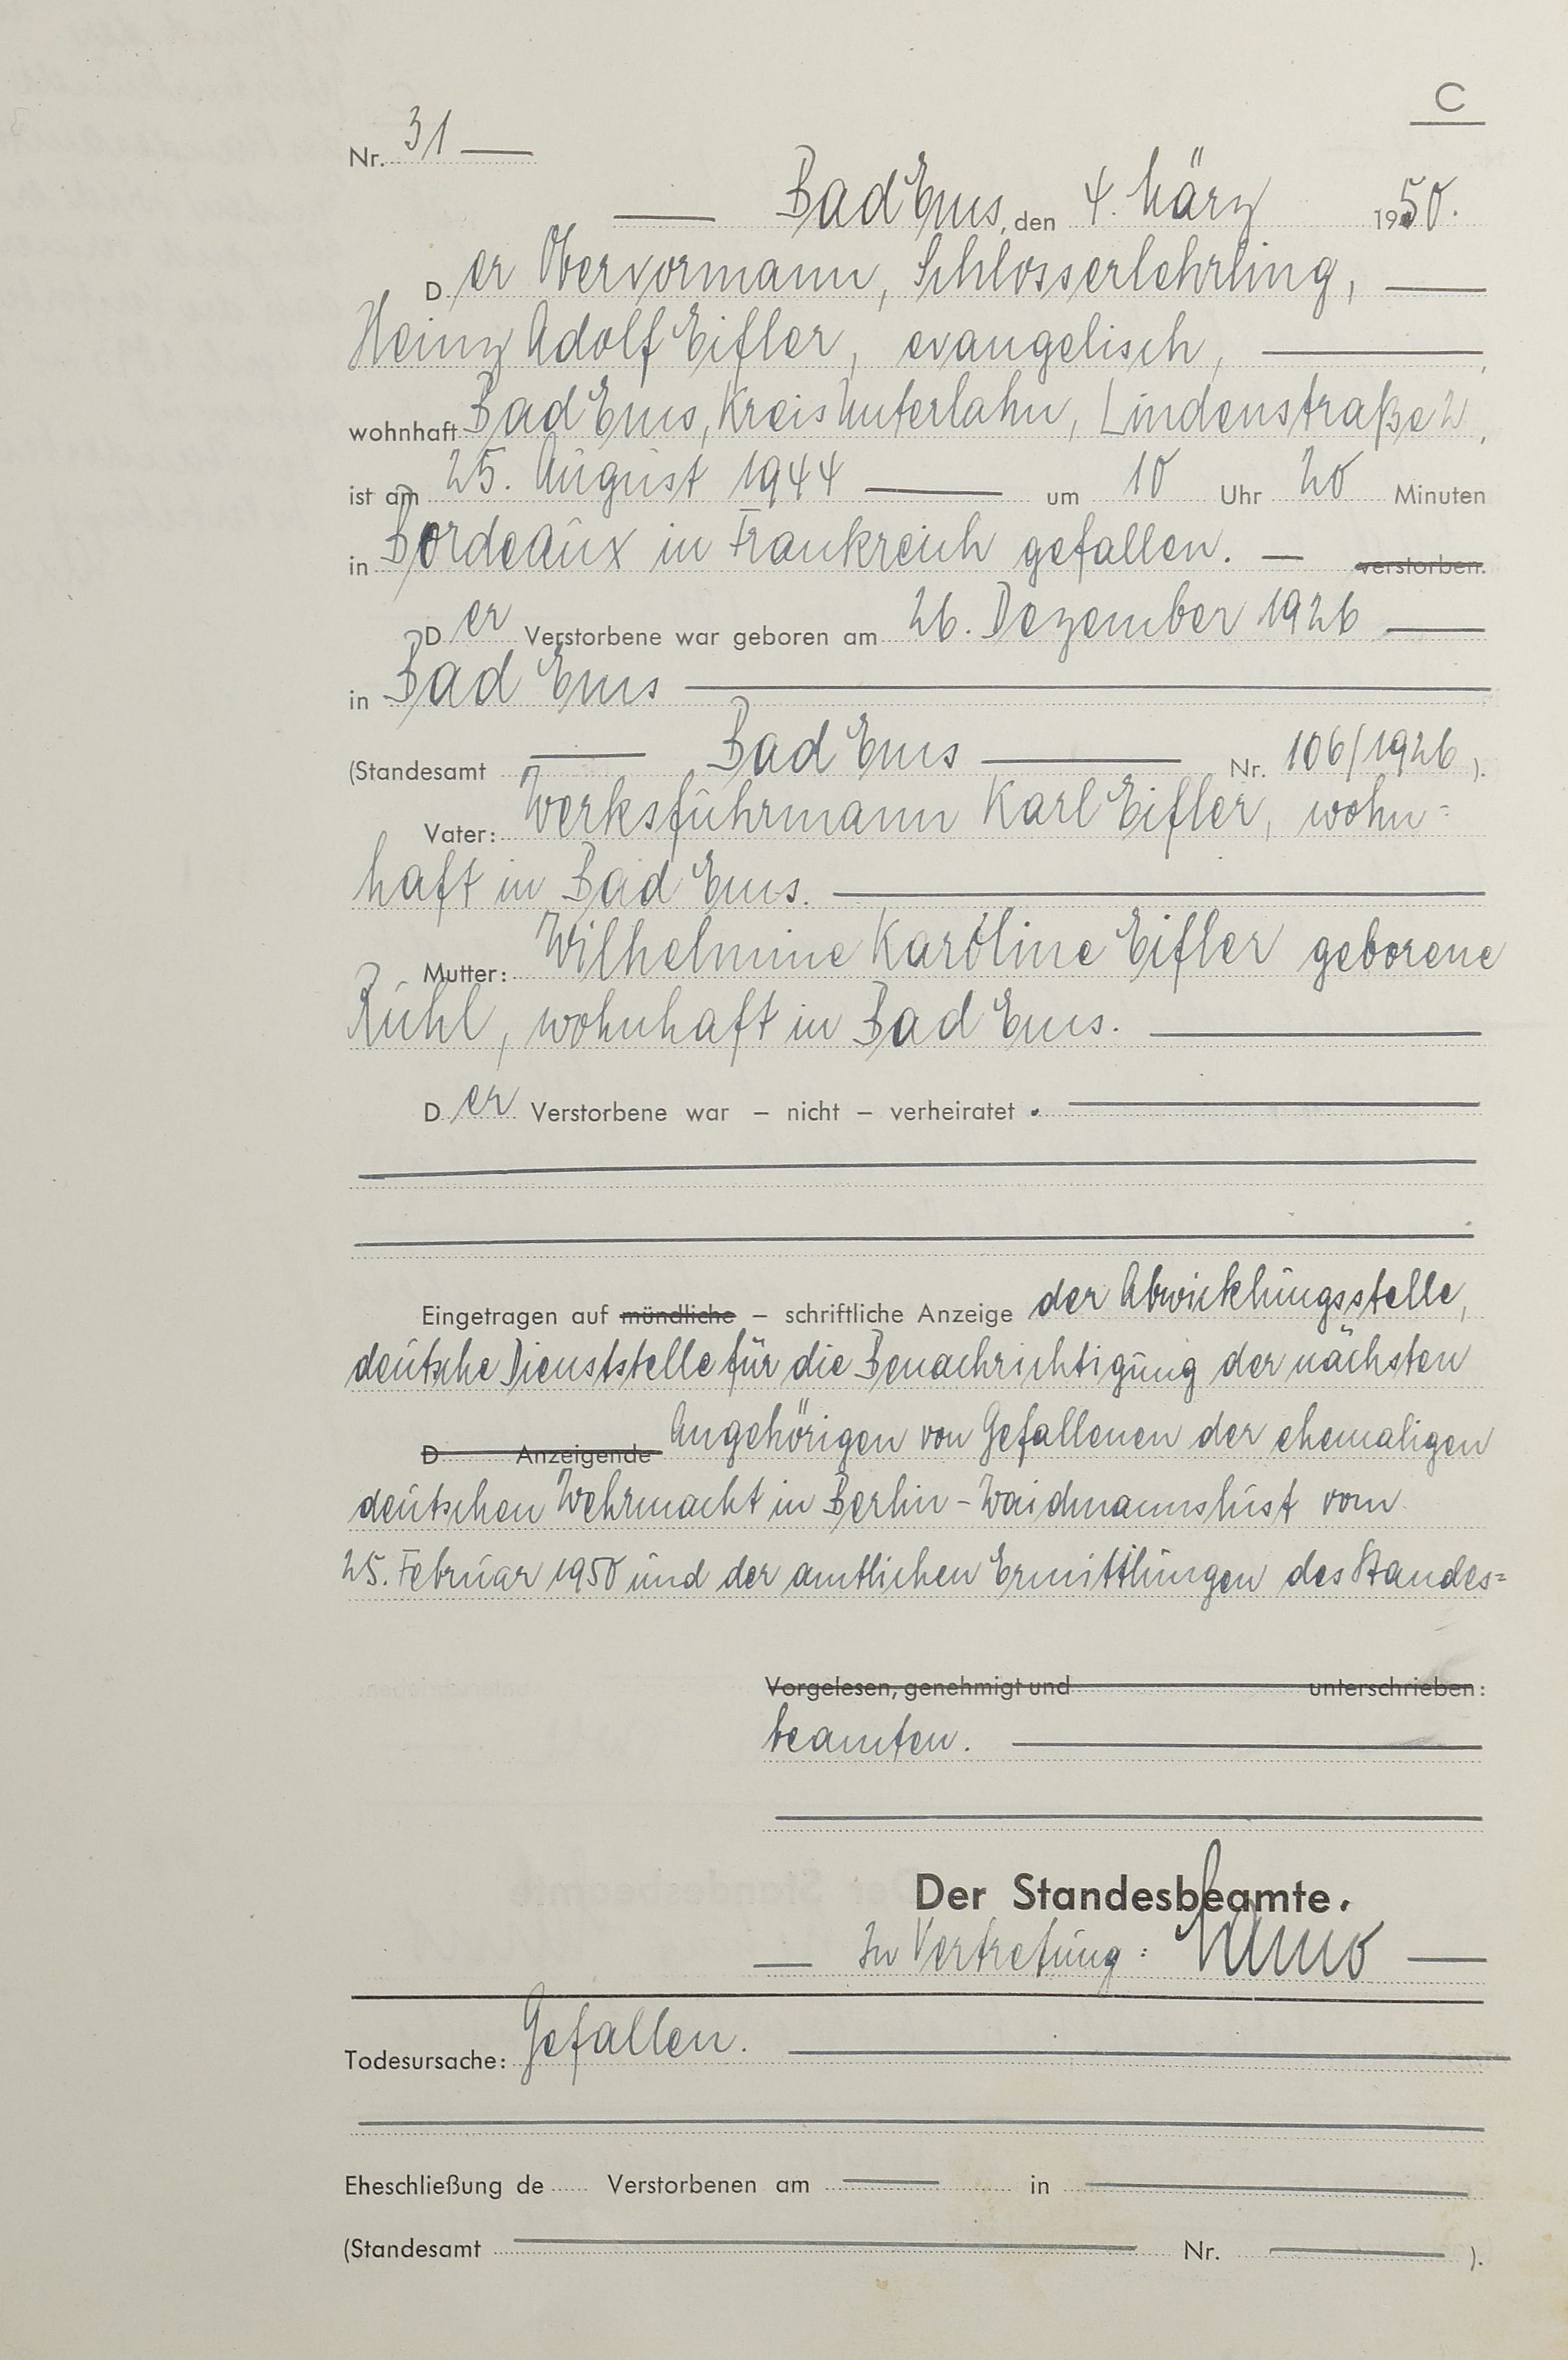 C
Nr. 31
Bad Ems, den 4. März 1950.
Der Obervormann, Schlosserlehrling,
Heinz Adolf Eifler, evangelisch,
wohnhaft Bad Ems, Kreis Unterlahn, Lindenstraße 2,
ist am 25. August 1944 um 10 Uhr 20 Minuten
in Bordeaux in Frankreich gefallen. — verstorben.
Der Verstorbene war geboren am 26. Dezember 1926
in Bad Ems
(Standesamt Bad Ems Nr. 106/1926 ).
Vater: Werksführmann Karl Eifler, wohn=
haft in Bad Ems.
Mutter: Wilhelmine Karoline Eifler geborene
Rühl, wohnhaft in Bad Ems.
Der Verstorbene war – nicht – verheiratet.
Eingetragen auf mündliche – schriftliche Anzeige der Abwicklungsstelle,
deutsche Dienststelle für die Benachrichtigung der nächsten
D Anzeigende Angehörigen von Gefallenen der ehemaligen
deutschen Wehrmacht in Berlin-Waidmannslust vom
25. Februar 1950 und der amtlichen Ermittlungen des Standes=
Vorgelesen, genehmigt und unterschrieben:
beamten.
Der Standesbeamte.
In Vertretung:
Todesursache: Gefallen.
Eheschließung de Verstorbenen am in
(Standesamt Nr. ).